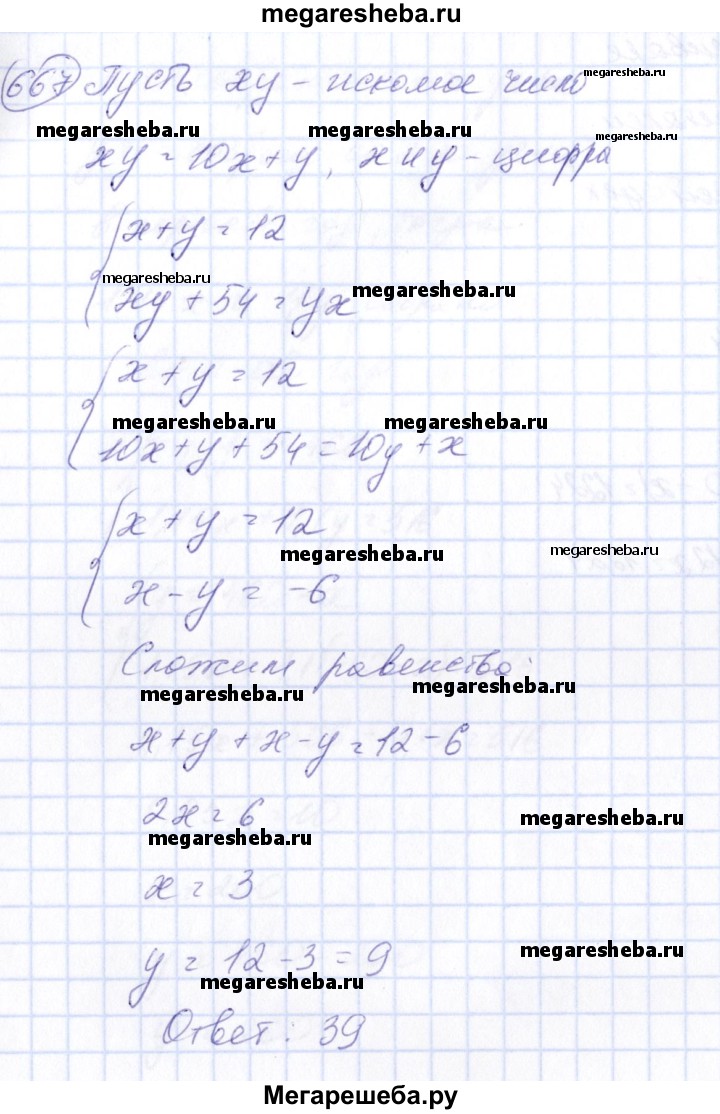 megaresheba.ru
667 Пусть xy - искомое число
megaresheba.ru
megaresheba.ru megaresheba.ru megaresheba.ru
xy = 10x + y, x и y - цифра
x + y = 12
megaresheba.ru megaresheba.ru
xy + 54 = yx
x + y = 12
megaresheba.ru megaresheba.ru
10x + y + 54 = 10y + x
x + y = 12
megaresheba.ru megaresheba.ru
x - y = -6
Сложим равенства:
megaresheba.ru megaresheba.ru
x + y + x - y = 12 - 6
2x = 6
megaresheba.ru megaresheba.ru
x = 3
y = 12 - 3 = 9
megaresheba.ru megaresheba.ru
Ответ: 39
Мегарешеба.ру